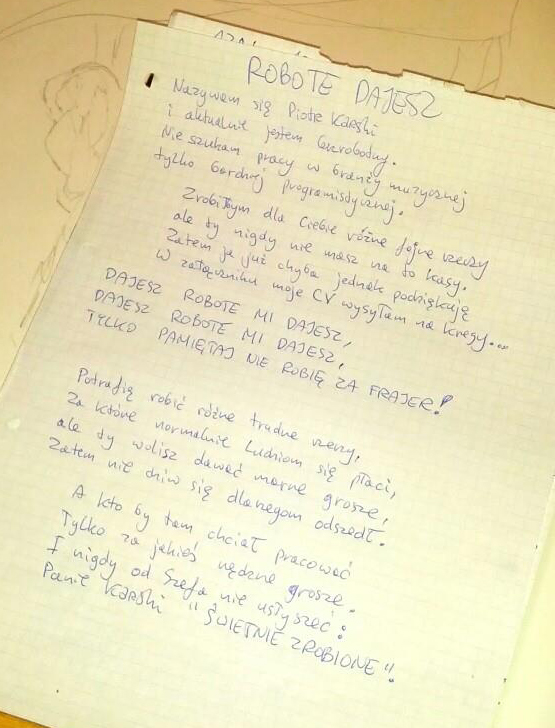 ROBOTE DAJESZ
Nazywam się Piotr Karski
i aktualnie jestem bezrobotny.
Nie szukam pracy w branży muzycznej
tylko bardziej programistycznej.
Zrobiłbym dla Ciebie różne fajne rzeczy
ale ty nigdy nie masz na to kasy.
Zatem ja już chyba jednak podziękuję
W załączniku moje CV wysyłam na kręgy...
DAJESZ ROBOTE MI DAJESZ,
DAJESZ ROBOTE MI DAJESZ,
TYLKO PAMIĘTAJ NIE ROBIĘ ZA FRAJER!
Potrafię robić różne trudne rzeczy,
Za które normalnie ludziom się płaci,
ale ty wolisz dawać marne grosze,
Zatem nie dziw się dlaczegom odszedł.
A kto by tam chciał pracować
Tylko za jakieś nędzne grosze.
I nigdy od Szefa nie usłyszeć:
Panie Karski "ŚWIETNIE ZROBIONE"!